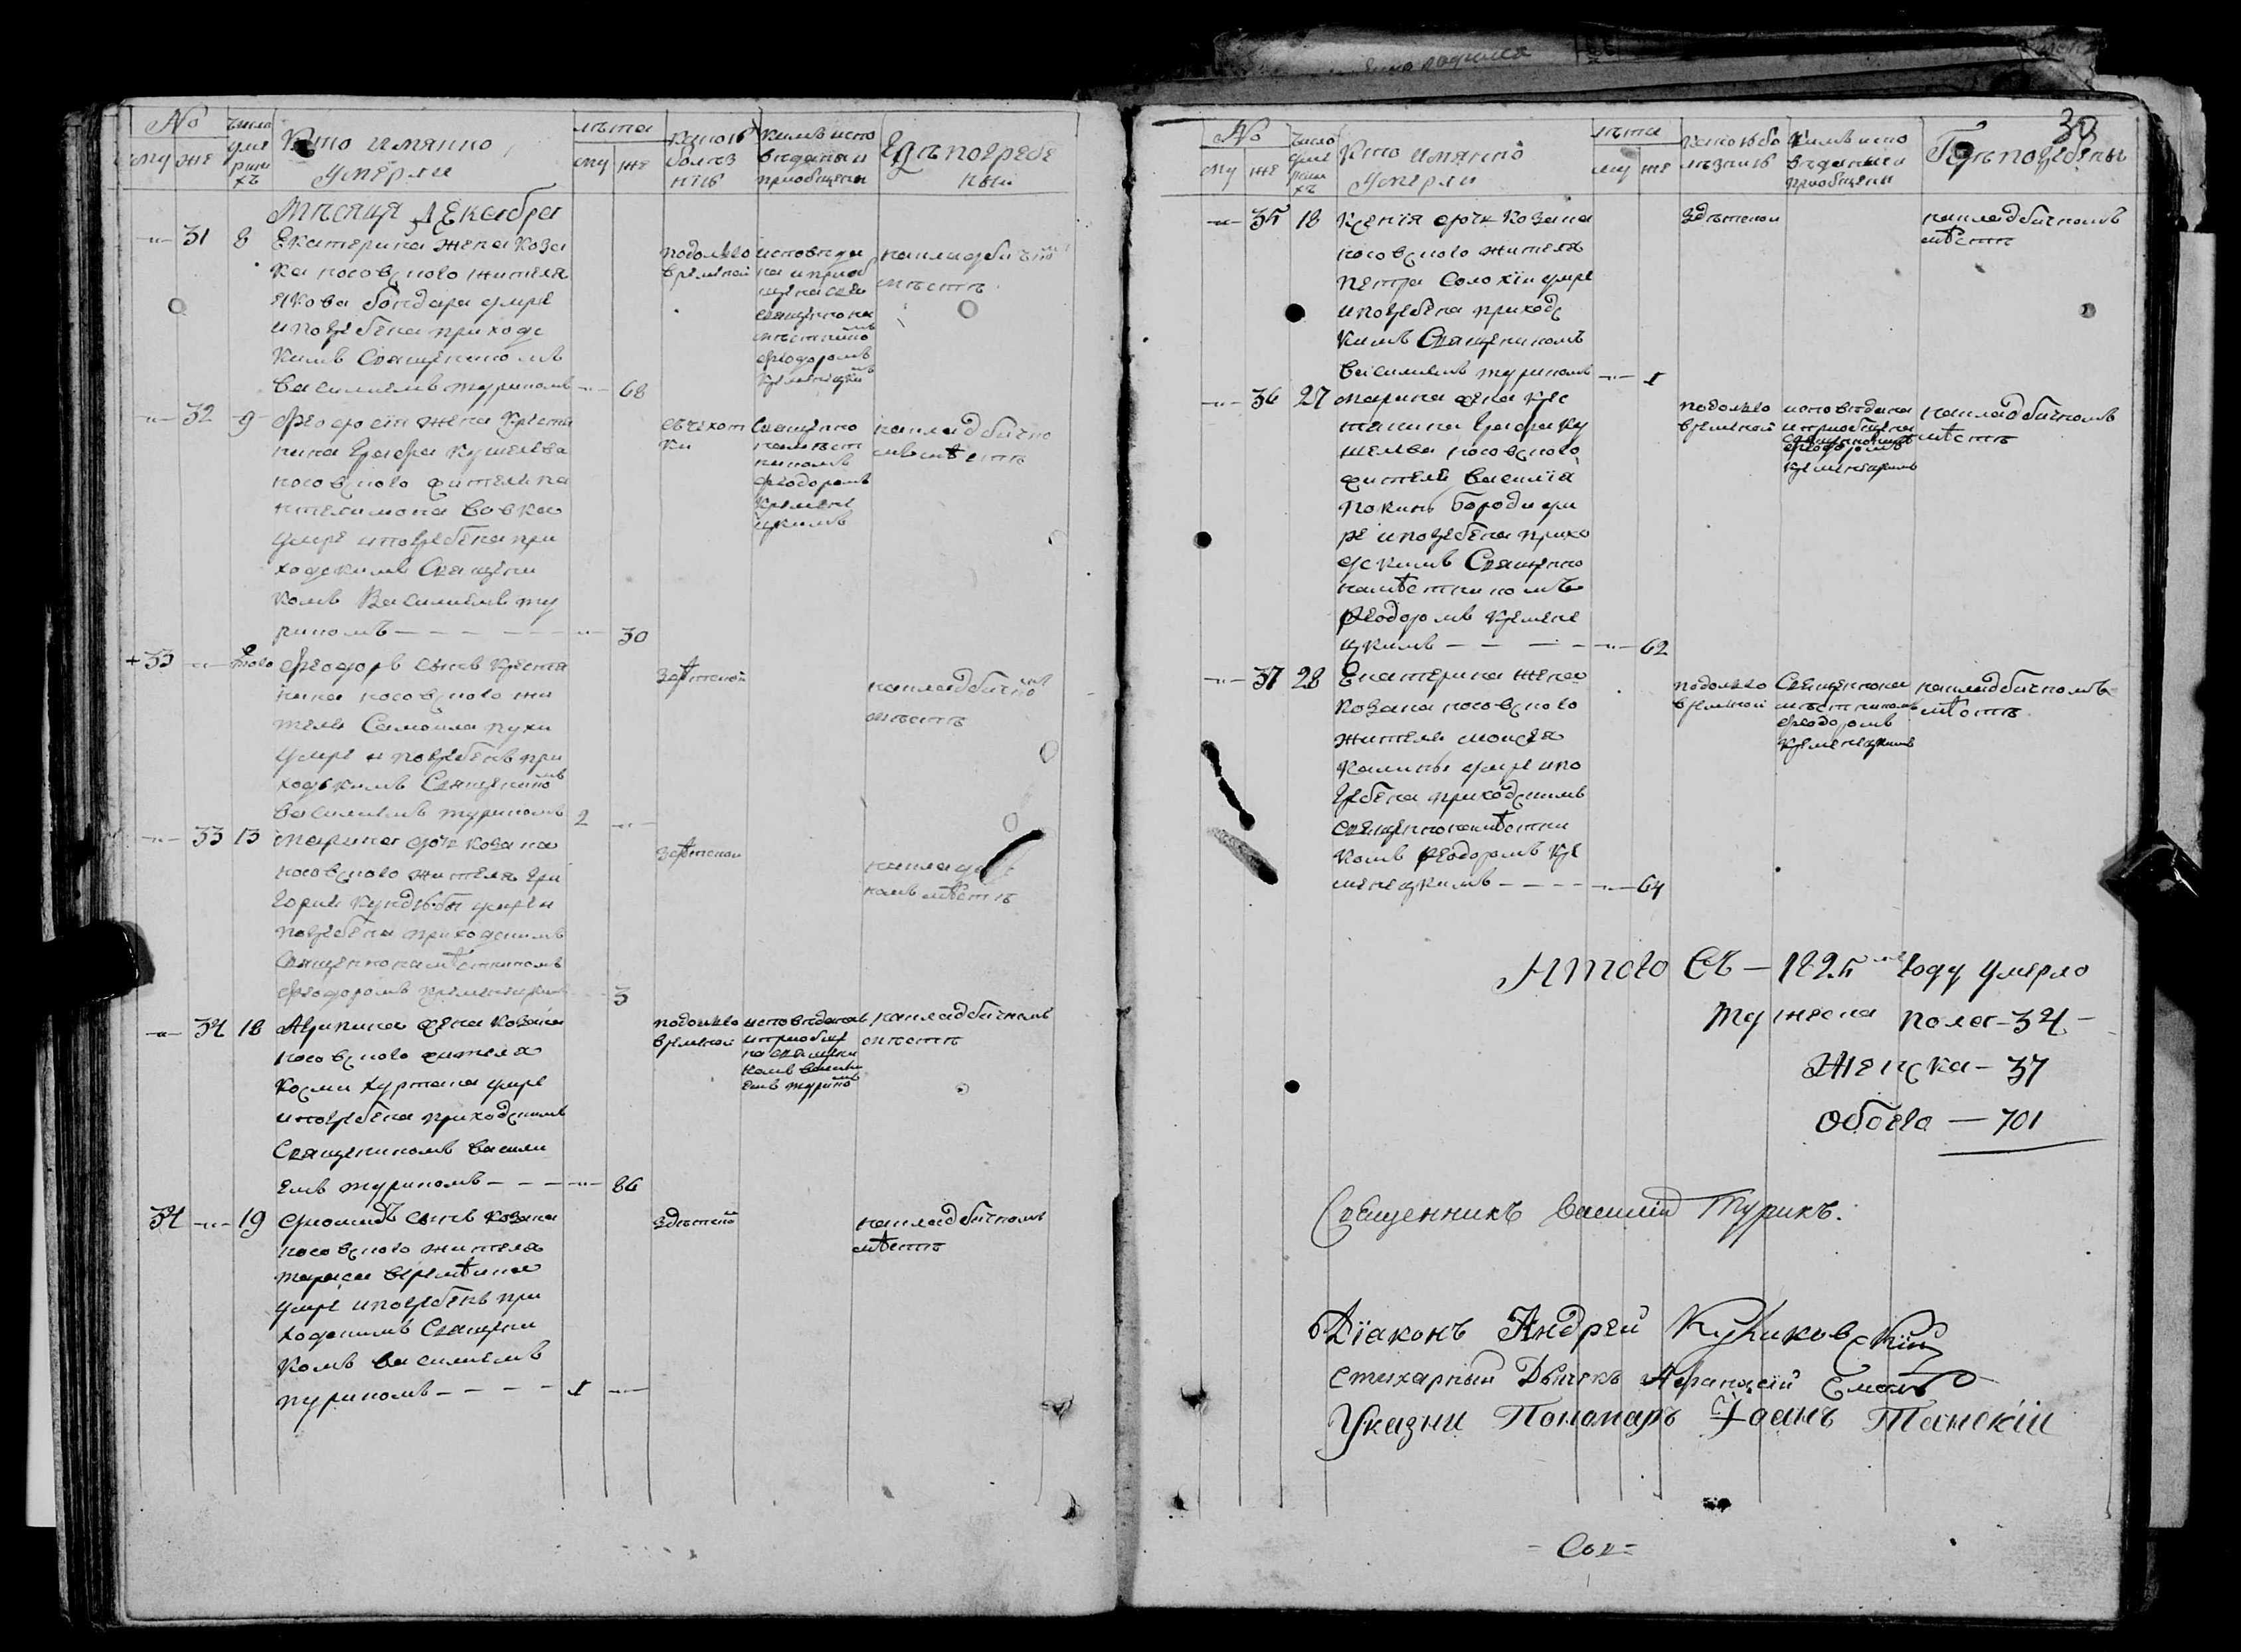 No
число
умерши
хъ
Кто имянно
умерли
лѣта
му же
му же
Какою
болез
нію
Кимъ испо
вѣданы и
приобщены
Гдѣ погребе
ны
Мѣсяця Декабря
31 8 Екатерина жена коза
ка носовского жителя
Якова бондара умре
и погребена приходс
кимъ Священикомъ
Василиемъ турикомъ 68
подолго
временной
исповѣда
на и приоб
щена свя
священна
мѣстнико
Феодоромъ
кременецки
на кладбичном
мѣстѣ
32 9 Феодосія жена крестя
нина графа кушелева
носовского жителя па
нтелимона Вовка
умре и погребена при
ходскимъ Священи
комъ Василиемъ ту
рикомъ 30
Священно
намѣст
никомъ
Феодоромъ
кремене
цкимъ
на кладбично
мъ мѣстѣ
+33 того Феодоръ сынъ крестя
нина носовского жи
теля Самоила пухи
умре и погребенъ при
ходскимъ Священико
Василиемъ турикомъ 2
здѣтской
на кладбично
мѣстѣ
33 13 Марина дочь козака
носовского жителя Гри
гория кундюбы умре и
погребена приходскимъ
Священнонамѣстникомъ
Феодоромъ Кременецкимъ 3
здѣтской
мѣстѣ
34 18 Агрипина жена козака
носовского жителя
Космы хурмана умре
и погребена приходскимъ
Священикомъ Васили
емъ турикомъ 86
подолго
временной
исповѣдана
и приобще
на священи
комъ Васили
емъ турико
на кладбичномъ
мѣстѣ
34 19 Диомидъ сынъ козака
носовского жителя
тараса Веремѣенка
умре и погребенъ при
ходскимъ Священи
комъ Василиемъ
турикомъ 1
здѣтско
на кладбичномъ
мѣстѣ
30
No
му же
число
умер
ших
хъ
Кто имянно
умерли
лѣта
му же
Какою бо
лѣзнию
Кимъ испо
вѣданы и
приобщены
Гдѣ погребены
35 18 Ксенія дочь козака
носовского жителя
петра Солохіи умре
и погребена приходс
кимъ Священикомъ
Василиемъ турикомъ 1
здѣтской
на кладбичномъ
мѣстѣ
36 27 Марина жена крес
тянина Графа ку
шелева носовского
жителя Василія
покинь бороди ум
ре и погребена прихо
дскимъ Священно
намѣстникомъ
Феодоромъ Кремене
цкимъ 62
подолго
временной
исповѣдана
и приобщена
священно
Феодоромъ
кременецкимъ
на кладбичномъ
мѣстѣ
37 28 Екатерина жена
козака носовского
жителя моисея
Калины умре и по
гребена приходскимъ
священнонамѣстни
комъ Феодоромъ Кре
менецкимъ 64
подолго
временной
Священнона
мѣстникомъ
Феодоромъ
Кременецкимъ
на кладбичномъ
мѣстѣ
Итого въ — 1825 м году умерло
мужеска пола - 34 -
Женска - 37
Обоего — 701
Священникъ Василій Турикъ.
Діаконъ Андрей Куликовскій
Стихарный Дьячекъ Афанасій
Указни Пономаръ Іоанъ Танскій